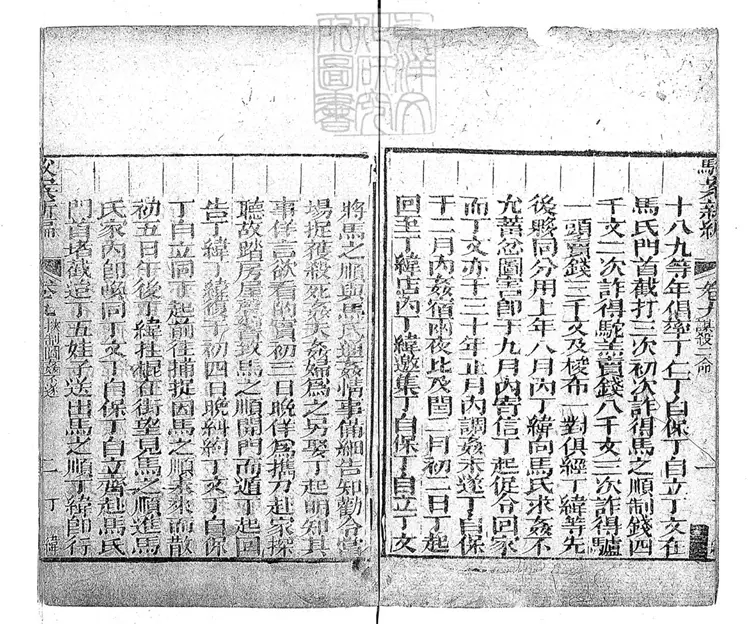 駁案新編
卷九
謀殺二命
一
十八九等年倡率丁仁丁自保丁自立丁文在
馬氏門首截打三次初次詐得馬之順制錢四
千文二次詐得駝羔賣錢八千文三次詐得驢
一頭賣錢三千文及梭布一對俱經丁緯等先
後夥同分用上年八月內丁緯向馬氏求姦不
允蓄忿圖害即于九月內寄信丁起促令回家
而丁文亦于三十年正月內調姦未遂丁自保
于二月內姦宿兩夜比及閏二月初二日丁起
回至丁緯店內丁緯邀集丁自保丁自立丁文
將馬之順與馬氏通姦情事備細告知勸令當
場捉獲殺死姦夫姦婦為之另娶丁起明知其
事佯言欲看的實初三日晚佯為攜刀赴家探
聽故踏房屋驚馬之順開門而遁丁起回
告丁緯丁緯復于初四日晚糾約丁文丁自保
丁自立同丁起前往捕捉因馬之順未來而散
初五日午後丁緯拄棍在街望見馬之順進馬
氏家內即喚同丁文丁自保丁自立齊赴馬氏
門首堵截適丁五娃子送出馬之順丁緯即行
駁案新編
卷九
挾制圖姦不遂
二
丁緯